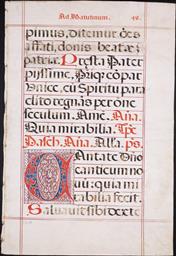 Ad Matutinum. 49.
pimus, Ditemur des
assati, donis beatae
patriae. Presta Pater
piissime, Patriqz compar
Unice, cu Spiritu para
clito regnas per one
seculum. Ame. Aña.
Quia mirabilia. Tpe
Pasch. Aña. Alla. ps.
Cantate Dño
canticum no
vu: quia mi
rabilia fecit.
Salvavit sibi dexte